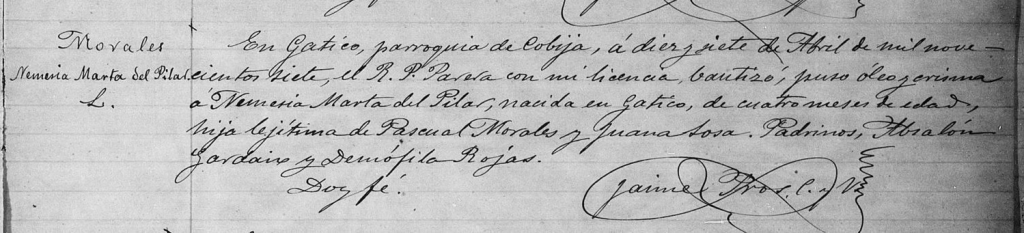 Morales
Nemesia Marta del Pilar
L.
En Gatico, parroquia de Cobija, á diez y siete de Abril de mil nove-
cientos siete, el R. P. Parera con mi licencia, bautizó, puso óleo y crisma
á Nemesia Marta del Pilar, nacida en Gatico, de cuatro meses de edad,
hija lejítima de Pascual Morales y Juana Sosa. Padrinos, Absalón
y Demófila Rojas.
Doy fé.
Jaime C. y V.